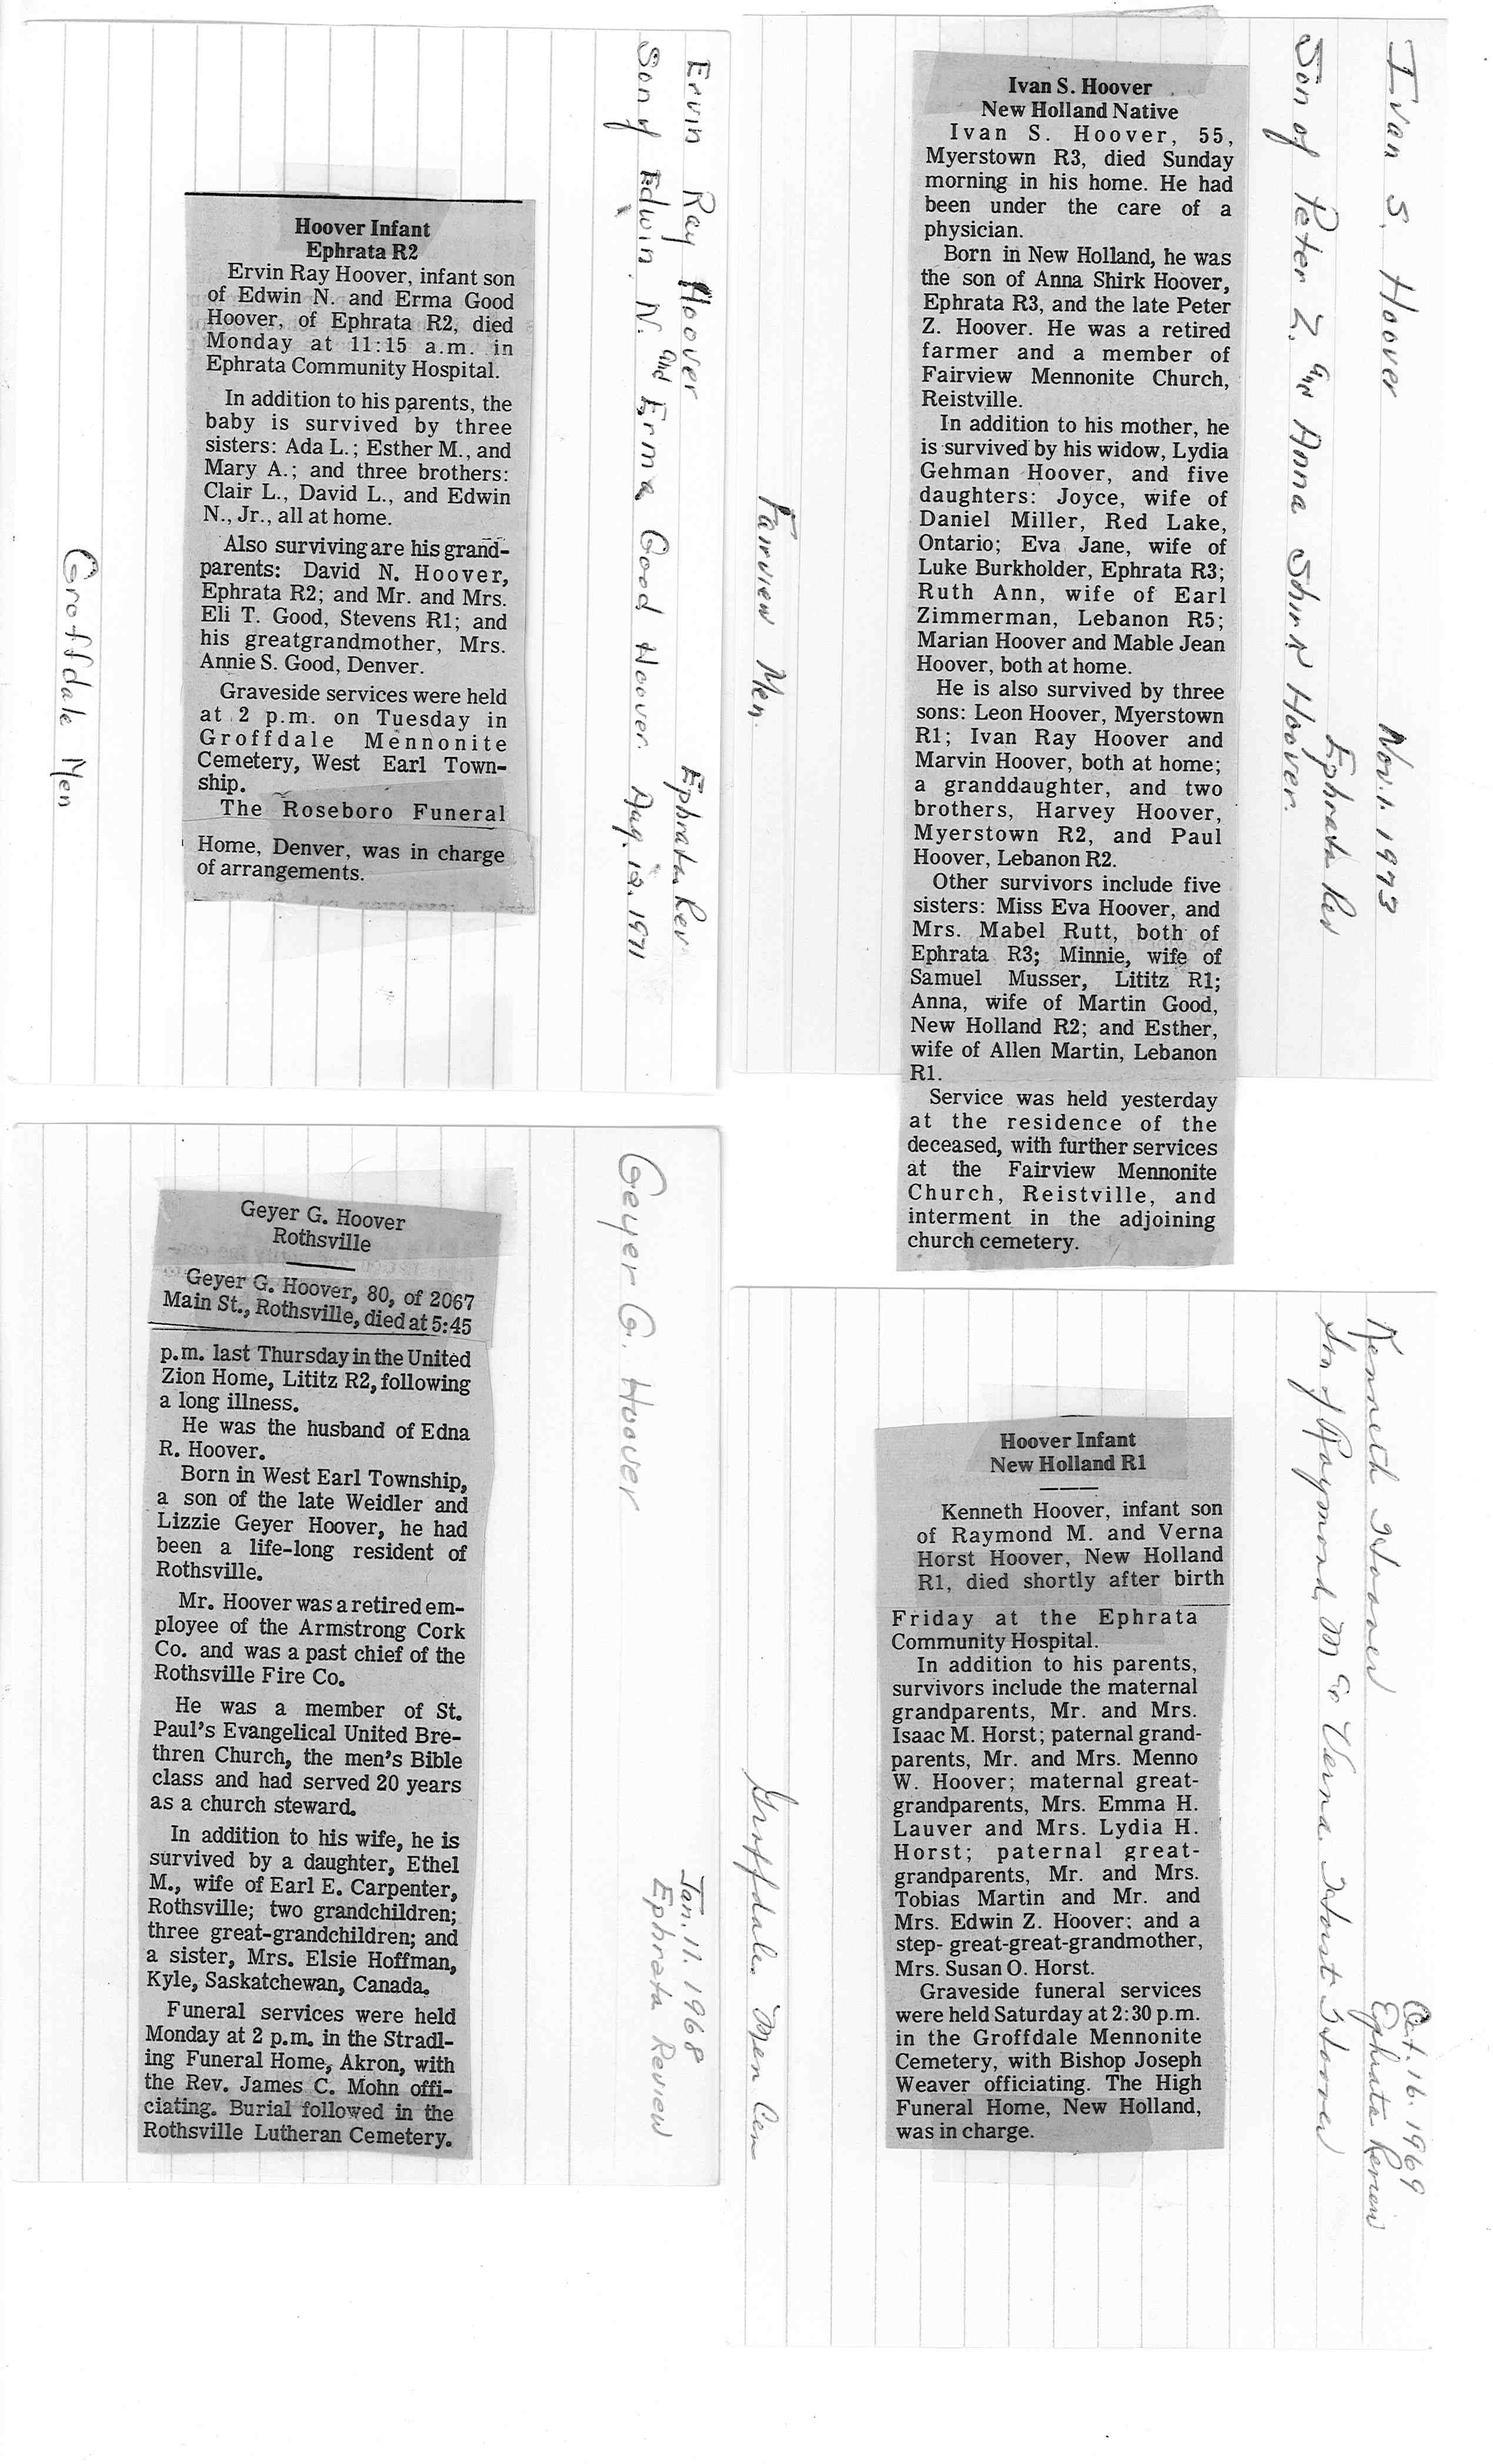 Ervin Ray Hoover
Ephrata Rev
Son of Edwin N. and Erma Good Hoover. Aug. 12. 1971
Hoover Infant
Ephrata R2
Ervin Ray Hoover, infant son
of Edwin N. and Erma Good
Hoover, of Ephrata R2, died
Monday at 11:15 a.m. in
Ephrata Community Hospital.
In addition to his parents, the
baby is survived by three
sisters: Ada L.; Esther M., and
Mary A.; and three brothers:
Clair L., David L., and Edwin
N., Jr., all at home.
Also surviving are his grand-
parents: David N. Hoover,
Ephrata R2; and Mr. and Mrs.
Eli T. Good, Stevens R1; and
his greatgrandmother, Mrs.
Annie S. Good, Denver.
Graveside services were held
at 2 p.m. on Tuesday in
Groffdale Mennonite
Cemetery, West Earl Town-
ship.
The Roseboro Funeral
Home, Denver, was in charge
of arrangements.
Groffdale Men
Ivan S. Hoover Nov. 1. 1973
Ephrata Rev
Son of Peter Z. and Anna Shirk Hoover.
Ivan S. Hoover
New Holland Native
Ivan S. Hoover, 55,
Myerstown R3, died Sunday
morning in his home. He had
been under the care of a
physician.
Born in New Holland, he was
the son of Anna Shirk Hoover,
Ephrata R3, and the late Peter
Z. Hoover. He was a retired
farmer and a member of
Fairview Mennonite Church,
Reistville.
In addition to his mother, he
is survived by his widow, Lydia
Gehman Hoover, and five
daughters: Joyce, wife of
Daniel Miller, Red Lake,
Ontario; Eva Jane, wife of
Luke Burkholder, Ephrata R3;
Ruth Ann, wife of Earl
Zimmerman, Lebanon R5;
Marian Hoover and Mable Jean
Hoover, both at home.
He is also survived by three
sons: Leon Hoover, Myerstown
R1; Ivan Ray Hoover and
Marvin Hoover, both at home;
a granddaughter, and two
brothers, Harvey Hoover,
Myerstown R2, and Paul
Hoover, Lebanon R2.
Other survivors include five
sisters: Miss Eva Hoover, and
Mrs. Mabel Rutt, both of
Ephrata R3; Minnie, wife of
Samuel Musser, Lititz R1;
Anna, wife of Martin Good,
New Holland R2; and Esther,
wife of Allen Martin, Lebanon
R1.
Service was held yesterday
at the residence of the
deceased, with further services
at the Fairview Mennonite
Church, Reistville, and
interment in the adjoining
church cemetery.
Fairview Men.
Geyer G. Hoover
Jan. 11. 1968
Ephrata Review
Geyer G. Hoover
Rothsville
Geyer G. Hoover, 80, of 2067
Main St., Rothsville, died at 5:45
p.m. last Thursday in the United
Zion Home, Lititz R2, following
a long illness.
He was the husband of Edna
R. Hoover.
Born in West Earl Township,
a son of the late Weidler and
Lizzie Geyer Hoover, he had
been a life-long resident of
Rothsville.
Mr. Hoover was a retired em-
ployee of the Armstrong Cork
Co. and was a past chief of the
Rothsville Fire Co.
He was a member of St.
Paul's Evangelical United Bre-
thren Church, the men's Bible
class and had served 20 years
as a church steward.
In addition to his wife, he is
survived by a daughter, Ethel
M., wife of Earl E. Carpenter,
Rothsville; two grandchildren;
three great-grandchildren; and
a sister, Mrs. Elsie Hoffman,
Kyle, Saskatchewan, Canada.
Funeral services were held
Monday at 2 p.m. in the Stradl-
ing Funeral Home, Akron, with
the Rev. James C. Mohn offi-
ciating. Burial followed in the
Rothsville Lutheran Cemetery.
Kenneth Hoover
Oct. 16. 1969
Ephrata Review
Son of Raymond M and Verna Horst Hoover
Hoover Infant
New Holland R1
Kenneth Hoover, infant son
of Raymond M. and Verna
Horst Hoover, New Holland
R1, died shortly after birth
Friday at the Ephrata
Community Hospital.
In addition to his parents,
survivors include the maternal
grandparents, Mr. and Mrs.
Isaac M. Horst; paternal grand-
parents, Mr. and Mrs. Menno
W. Hoover; maternal great-
grandparents, Mrs. Emma H.
Lauver and Mrs. Lydia H.
Horst; paternal great-
grandparents, Mr. and Mrs.
Tobias Martin and Mr. and
Mrs. Edwin Z. Hoover; and a
step- great-great-grandmother,
Mrs. Susan O. Horst.
Graveside funeral services
were held Saturday at 2:30 p.m.
in the Groffdale Mennonite
Cemetery, with Bishop Joseph
Weaver officiating. The High
Funeral Home, New Holland,
was in charge.
Groffdale Men Cem